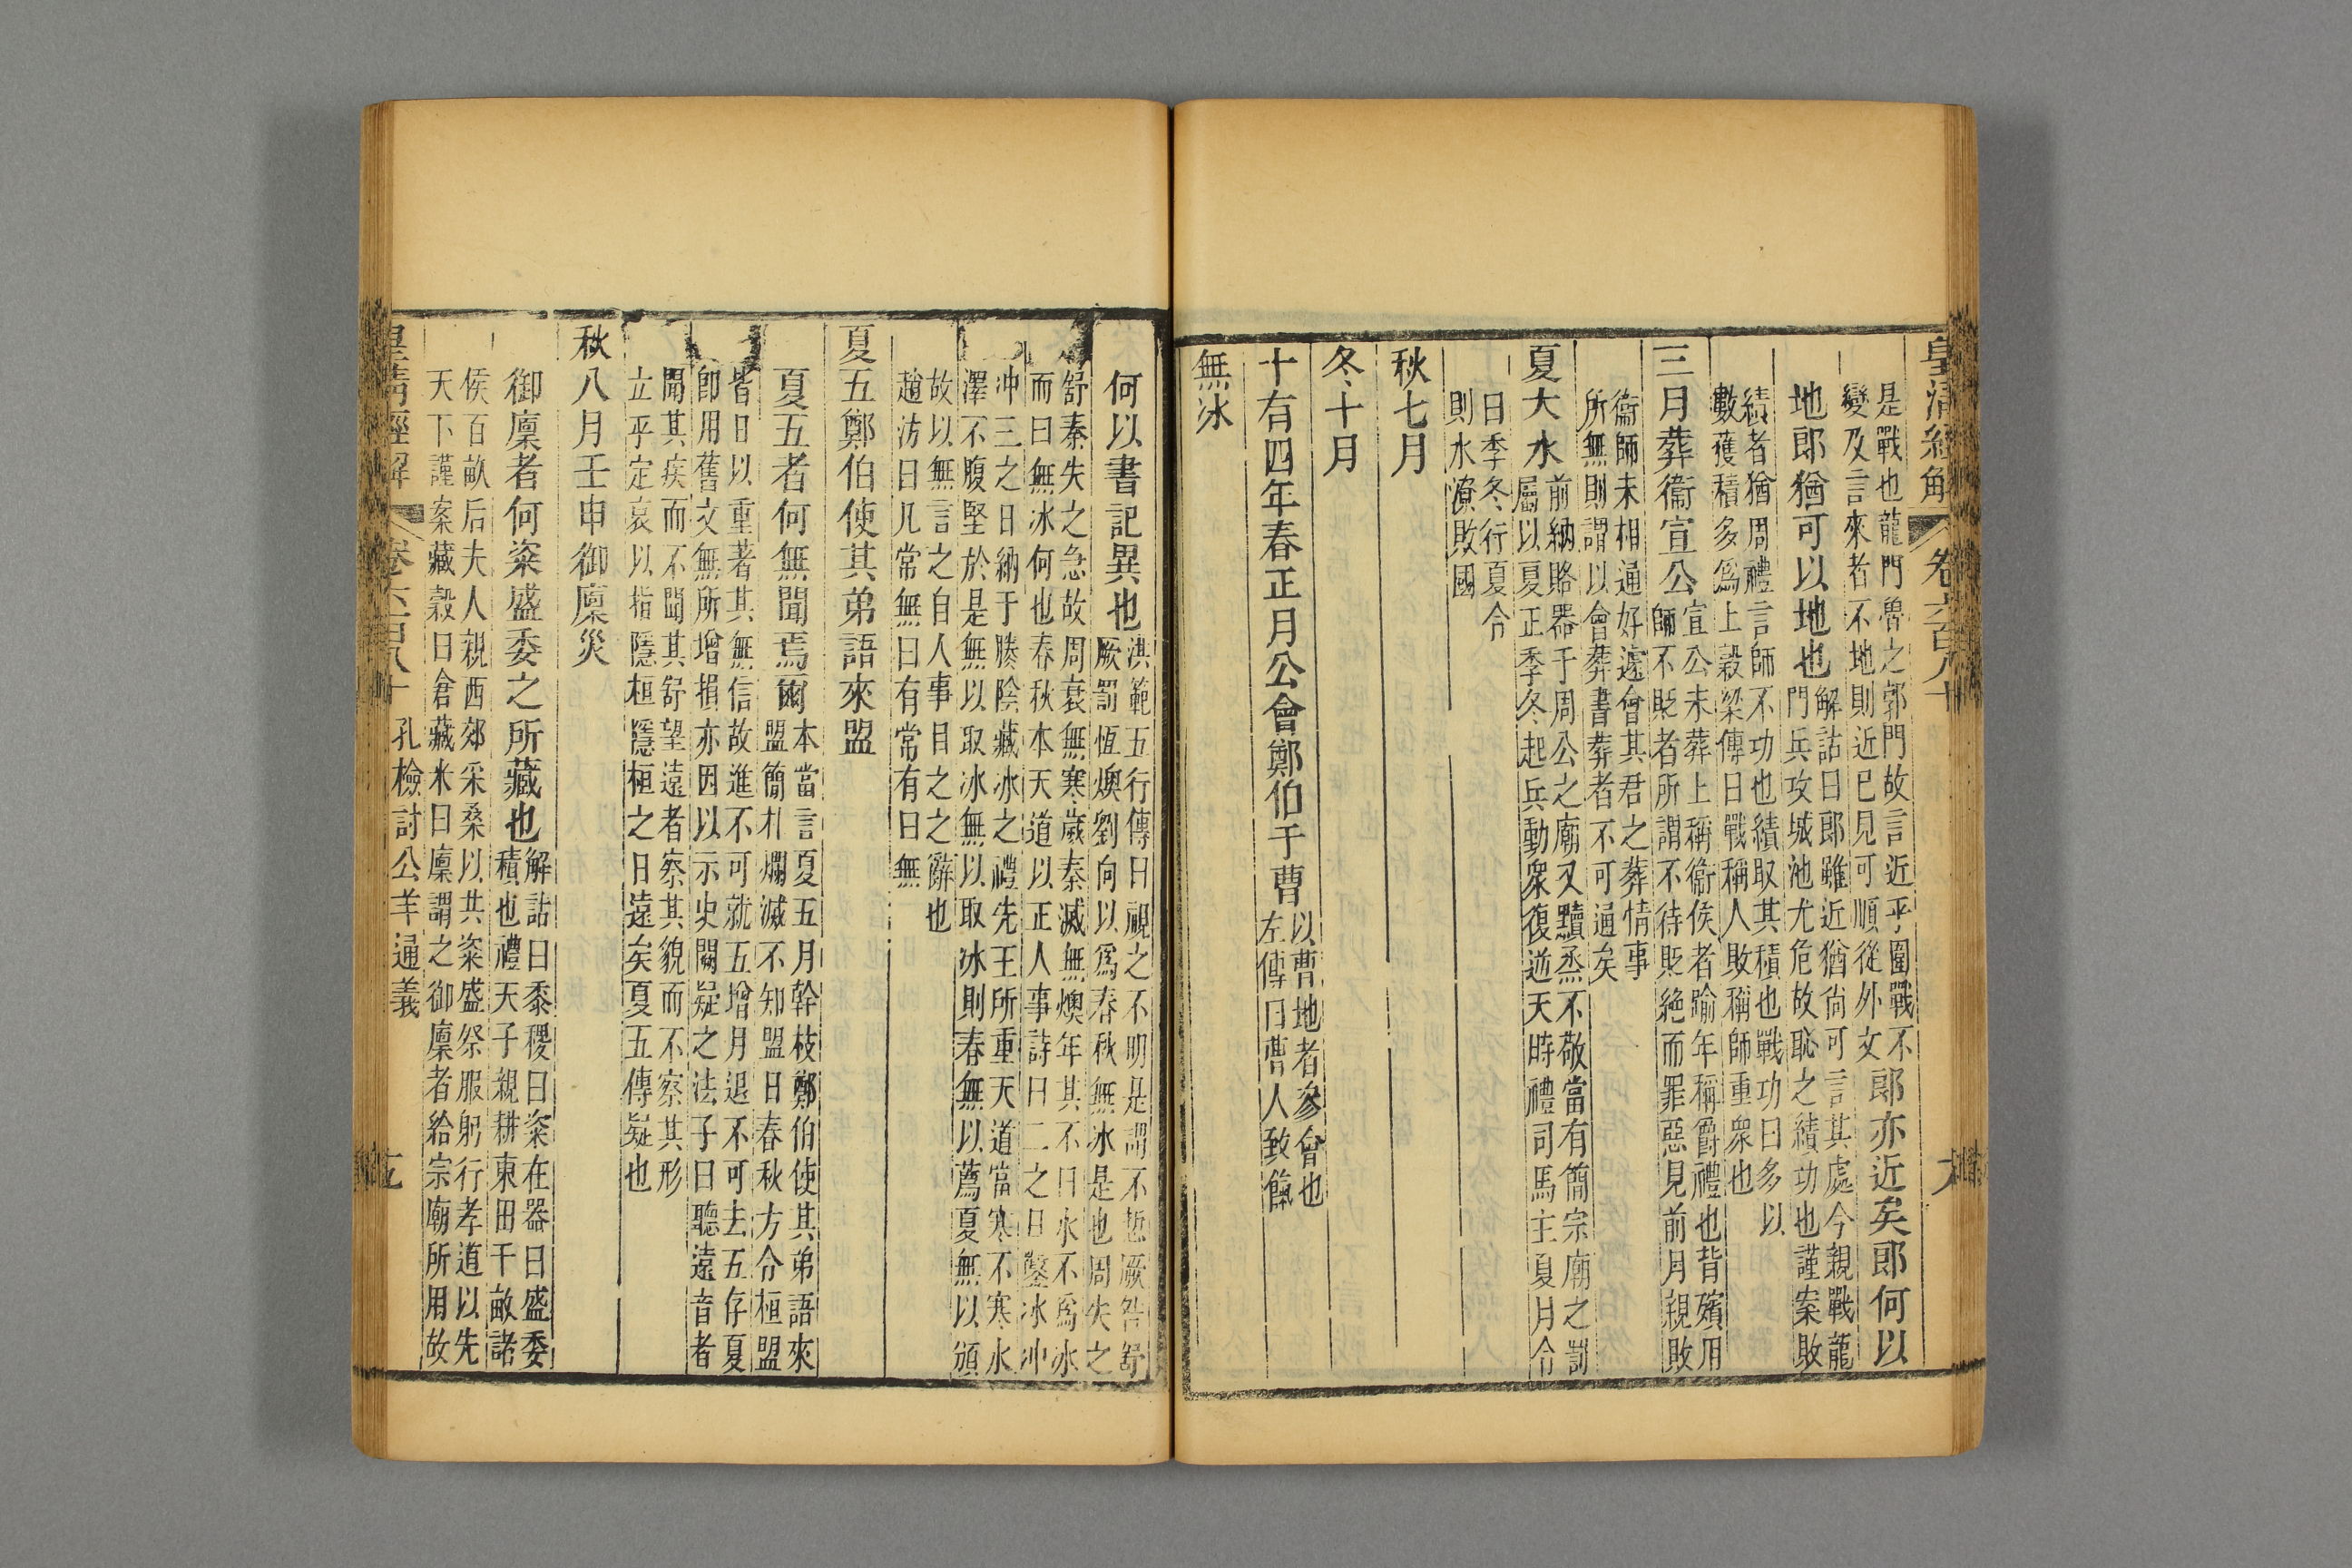 皇清經解 卷六百八十
是戰也龍門魯之郭門故言近乎圍戰不
變及言來者不地則近巳見可順從外文
郎亦近矣郎何以
地郎猶可以地也
解詁曰郎雖近猶尙可言其處今親戰龍
門兵攻城池尤危故恥之績功也謹案敗
績者猶周禮言師不功也績取其積也戰功曰多以
數獲積多爲上穀梁傳曰戰稱人敗稱師重衆也
三月葬衞宣公
宣公未葬上稱衞侯者踰年稱爵禮也背殯用
師不貶者所謂不待貶絕而罪惡見前月親敗
衞師未相通好遠會其君之葬情事
所無則謂以會葬書葬者不可通矣
夏大水
前納賂器于周公之廟又黷烝不敬當有簡宗廟之罰
屬以夏正季冬起兵動衆復逆天時禮司馬主夏月令
曰季冬行夏令
則水潦敗國
秋七月
冬十月
十有四年春正月公會鄭伯于曹
以曹地者參會也
左傳曰曹人致餼
無冰
何以書記異也
洪範五行傳曰視之不明是謂不悊厥咎舒
厥罰恆燠劉向以爲春秋無冰是也周失之
舒秦失之急故周衰無寒歲秦滅無燠年其不曰水不爲冰
而曰無冰何也春秋本天道以正人事詩曰二之日鑿冰沖
沖三之日納于滕陰藏冰之禮先王所重天道當寒不寒水
澤不腹堅於是無以取冰無以取冰則春無以薦夏無以頒
故以無言之自人事目之之辭也
趙汸曰凡常無曰有常有曰無
夏五鄭伯使其弟語來盟
夏五者何無聞焉爾
本當言夏五月幹枝鄭伯使其弟語來
盟簡札爛滅不知盟日春秋方令桓盟
皆日以重著其無信故進不可就五增月退不可去五存夏
卽用舊文無所增損亦因以示史闕疑之法子曰聽遠音者
聞其疾而不聞其舒望遠者察其貌而不察其形
立乎定哀以指隱桓隱桓之日遠矣夏五傳疑也
秋八月壬申御廩災
御廩者何粢盛委之所藏也
解詁曰黍稷曰粢在器曰盛委
積也禮天子親耕東田千畝諸
侯百畝后夫人親西郊采桑以共粢盛祭服躬行孝道以先
天下謹案藏穀曰倉藏米曰廩謂之御廩者給宗廟所用故
皇清經解 卷六百八十 孔檢討公羊通義